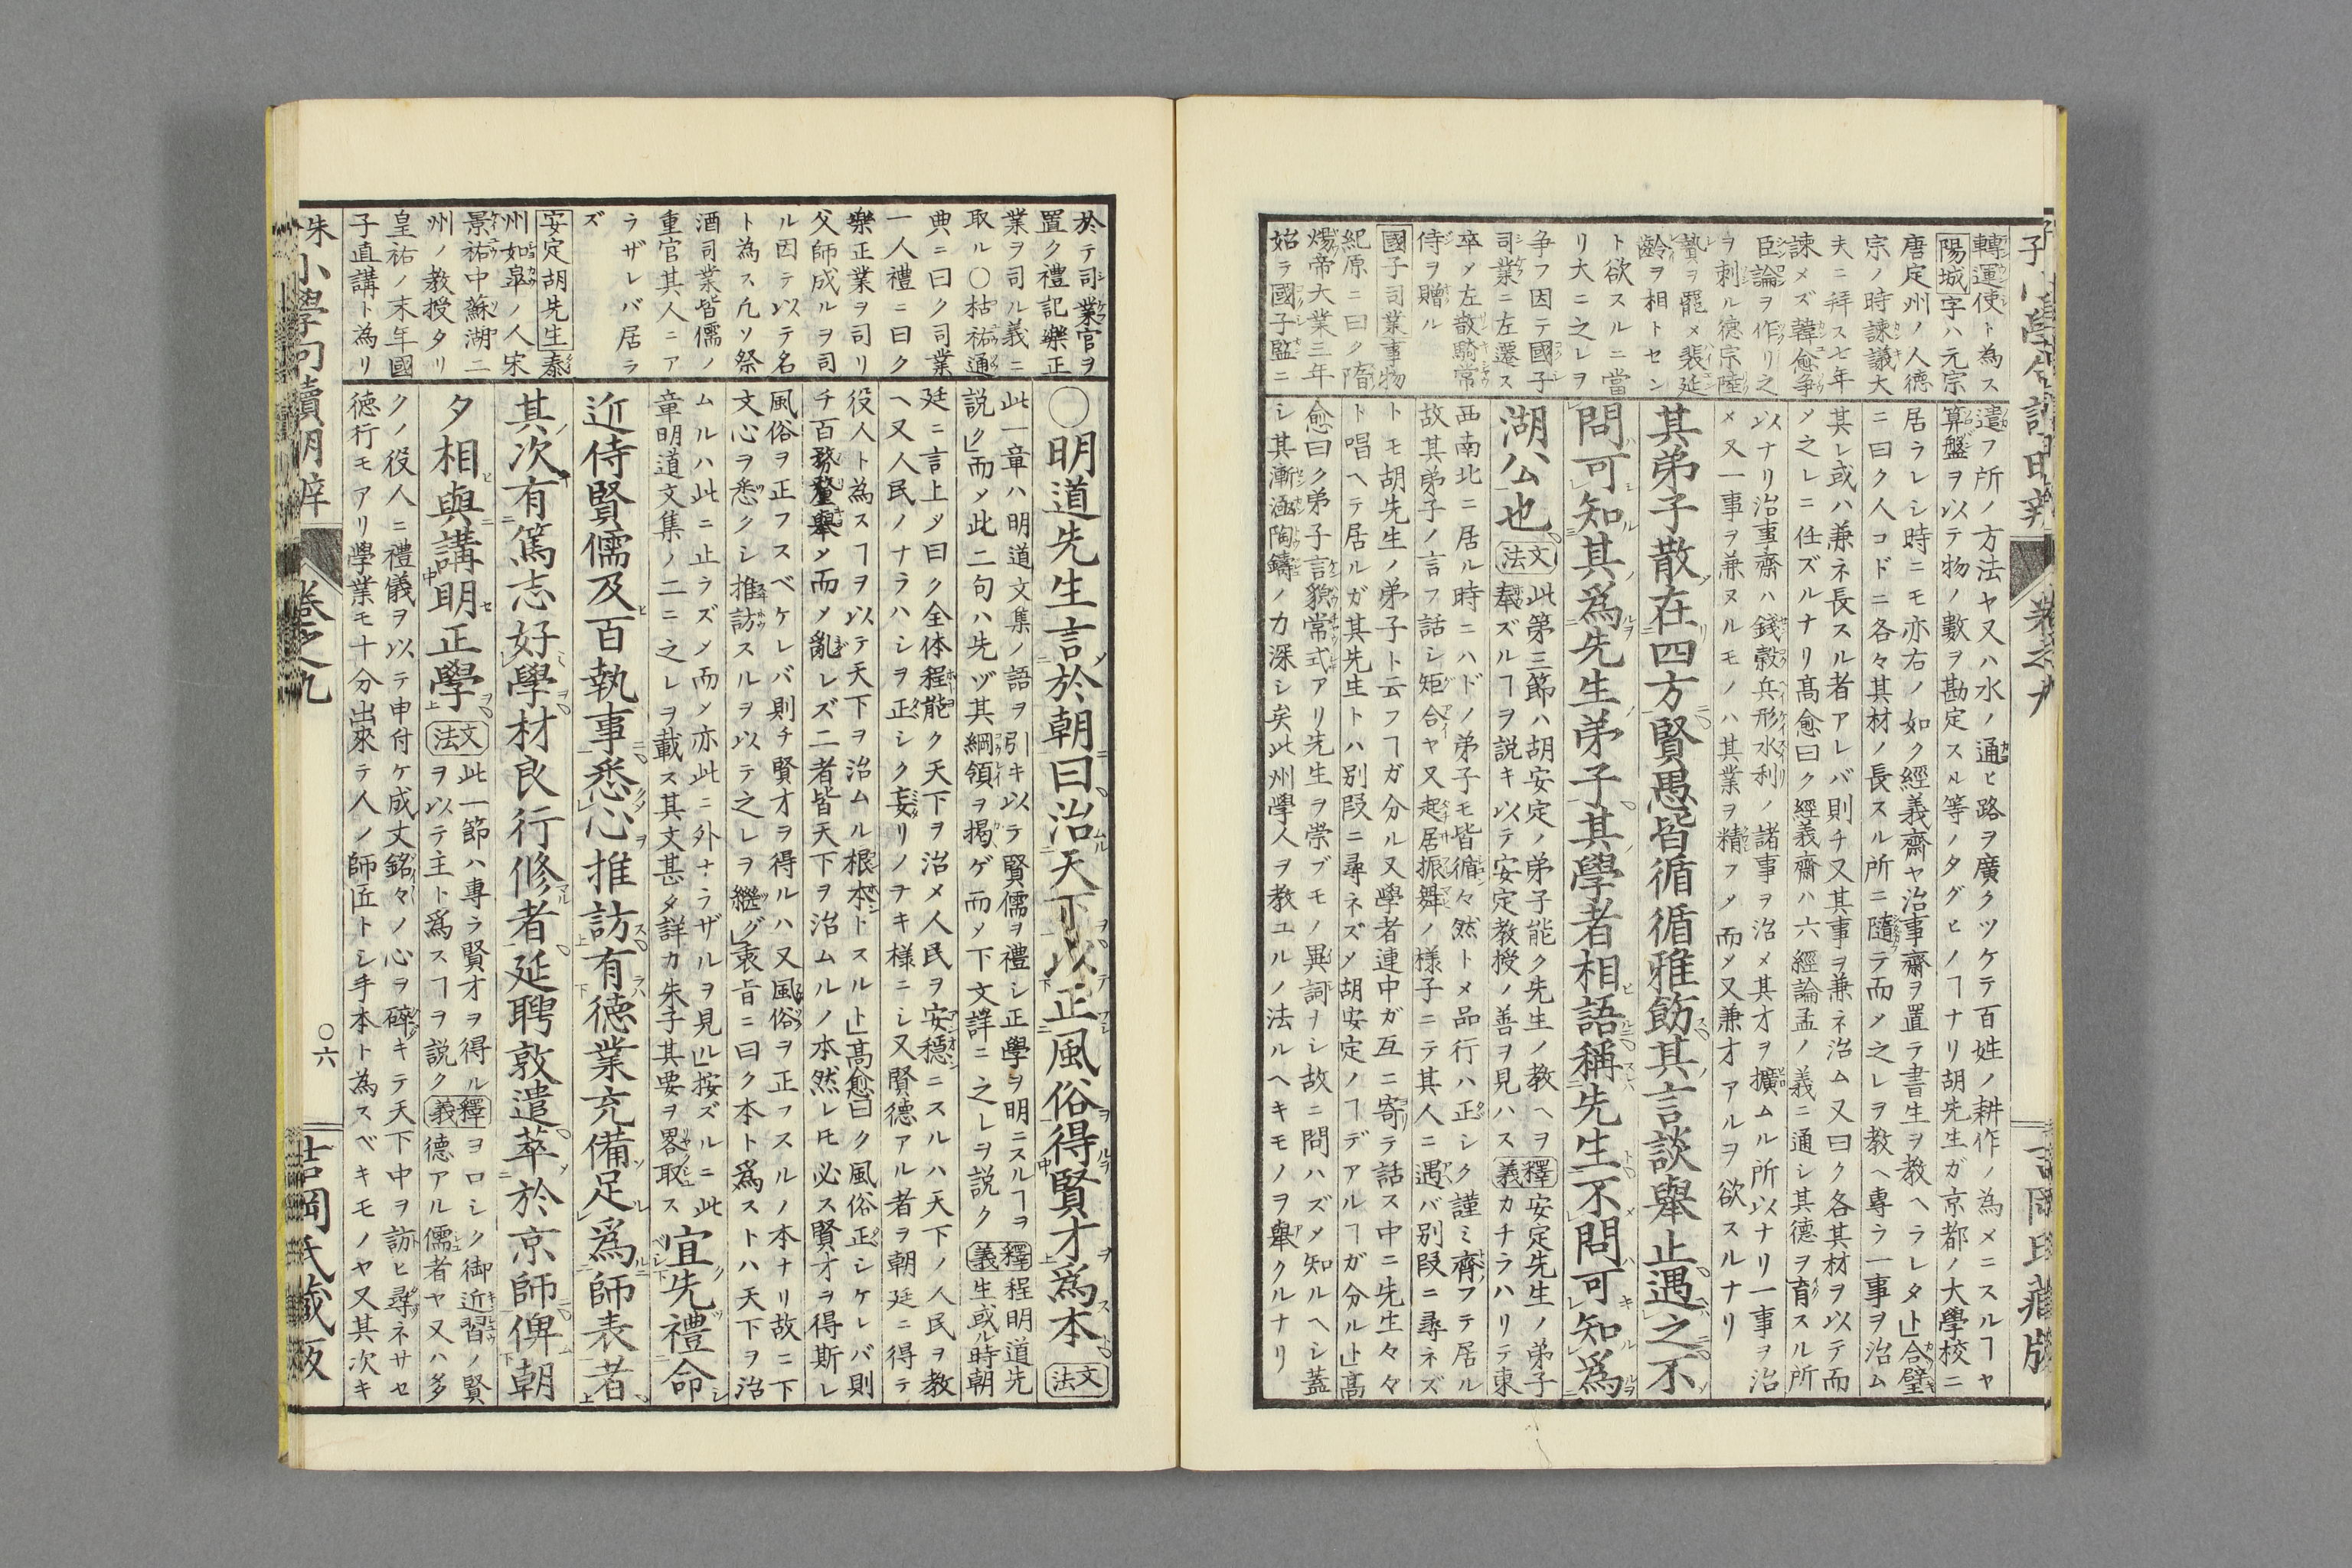 轉運使ト為ス
陽城字ハ元宗
唐定州ノ人徳
宗ノ時諫議大
夫ニ拜ス七年
諫メズ韓愈爭
臣論ヲ作リ之
ヲ刺ル徳宗陸
贄ヲ罷メ裴延
齡ヲ相トセン
ト欲スルニ當
リ大ニ之レヲ
争フ因テ國子
司業ニ左遷ス
卒メ左散騎常
侍ヲ贈ル
國子司業事物
紀原ニ曰ク隋
煬帝大業三年
始ラ國子監ニ
遣フ所ノ方法ヤ又ハ水ノ通ヒ路ヲ廣クツケテ百姓ノ耕作ノ為メニスルヿヤ
算盤ヲ以テ物ノ數ヲ勘定スル等ノタグヒノヿナリ胡先生ガ京都ノ大學校ニ
居ラレシ時ニモ亦右ノ如ク經義齋ヤ治事齋ヲ置テ書生ヲ教ヘラレタト」合璧
ニ曰ク人コドニ各々其材ノ長スル所ニ隨ラ而メ之レヲ教ヘ專ラ一事ヲ治ム
其レ或ハ兼ネ長スル者アレバ則チ又其事ヲ兼ネ治ム又曰ク各其材ヲ以テ而
メ之レニ任ズルナリ髙愈曰ク經義齋ハ六經論孟ノ義ニ通シ其德ヲ育スル所
以ナリ治事齋ハ錢穀兵形水利ノ諸事ヲ治メ其才ヲ擴ムル所以ナリ一事ヲ治
メ又一事ヲ兼ヌルモノハ其業ヲ精フメ而メ又兼才アルヲ欲スルナリ
其弟子散在四方賢愚皆循循雅飭其言談舉止遇之不
問可知其爲先生弟子其學者相語稱先生不問可知爲
湖公也
文法
此第三節ハ胡安定ノ弟子能ク先生ノ教ヘヲ
奉ズルヿヲ説キ以テ安定教授ノ善ヲ見ハス
釋義
安定先生ノ弟子
カチラハリテ東
西南北ニ居ル時ニハドノ弟子モ皆循々然トメ品行ハ正シク謹ミ齊フテ居ル
故其弟子ノ言フ話シ矩合ヤ又起居振舞ノ様子ニテ其人ニ遇バ別段ニ尋ネズ
トモ胡先生ノ弟子ト云フヿガ分ル又學者連中ガ互ニ寄テ話ス中ニ先生々々
ト唱ヘテ居ルガ其先生トハ別段ニ尋ネズメ胡安定ノヿデアルヿガ分ルト」髙
愈曰ク弟子言貌常式アリ先生ヲ崇ブモノ異詞ナシ故ニ問ハズメ知ルヘシ蓋
シ其漸涵陶鑄ノ力深シ矣此州學人ヲ教ユルノ法ルヘキモノヲ舉クルナリ
於テ司業官ヲ
置ク禮記樂正
業ヲ司ル義ニ
取ル〇枯祐通
典ニ曰ク司業
一人禮ニ曰ク
樂正業ヲ司リ
父師成ルヲ司
ル因テ以テ名
ト為ス凡ソ祭
酒司業皆儒ノ
重官其人ニア
ラザレバ居ラ
ズ
安定胡先生泰
州如皐ノ人宋
景祐中蘇湖二
州ノ教授タリ
皇祐ノ末年國
子直講ト為リ
〇明道先生言於朝曰治天下以正風俗得賢才爲本
文法
此一章ハ明道文集ノ語ヲ引キ以テ賢儒ヲ禮シ正學ヲ明ニスルヿヲ
説ク」而メ此二句ハ先ヅ其綱領ヲ揭ゲ而メ下文詳ニ之レヲ説ク
釋義
程明道先
生或ル時朝
廷ニ言上メ曰ク全体程能ク天下ヲ治メ人民ヲ安穩ニスルハ天下ノ人民ヲ教
ヘ又人民ノナラハシヲ正シク妄リノナキ様ニシ又賢德アル者ヲ朝廷ニ得テ
役人ト為スヿヲ以テ天下ヲ治ムル根本トスルト」髙愈曰ク風俗正シケレバ則
チ百務釐舉メ而メ亂レズ二者皆天下ヲ治ムルノ本然レ𪜈必ス賢才ヲ得斯レ
風俗ヲ正フスベケレバ則チ賢才ヲ得ルハ又風俗ヲ正フスルノ本ナリ故ニ下
文心ヲ悉クシ推訪スルヲ以テ之レヲ繼グ」衷旨ニ曰ク本ト爲ストハ天下ヲ治
ムルハ此ニ止ラズメ而メ亦此ニ外ナラザルヲ見ル」按ズルニ此
章明道文集ノ二ニ之レヲ載ス其文甚タ詳カ朱子其要ヲ畧取ス
宜先禮命
近侍賢儒及百執事悉心推訪有德業充備足爲師表者
其次有篤志好學材良行修者延聘敦遣萃於京師俾朝
夕相與講明正學
文法
此一節ハ專ラ賢才ヲ得ル
ヲ以テ主ト爲スヿヲ説ク
釋義
ヨロシク御近習ノ賢
德アル儒者ヤ又ハ多
クノ役人ニ禮儀ヲ以テ申付ケ成丈銘々ノ心ヲ碎キテ天下中ヲ訪ヒ尋ネサセ
徳行モアリ學業モ十分出來テ人ノ師匠トシ手本ト為スベキモノヤ又其次キ
朱小學句讀明辨
卷之九
〇六
吉岡氏藏版